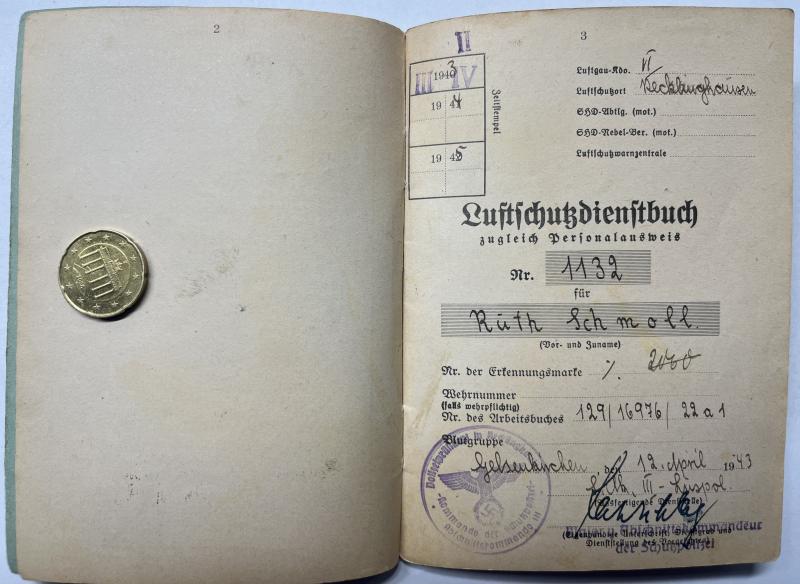 2
3
II
1943
III IV
19 44
19 45
Zeitstempel
Luftgau-Kdo. VI
Luftschutzort Recklinghausen
SHD-Abtlg. (mot.)
SHD-Nebel-Ber. (mot.)
Luftschutzwarnzentrale
Luftschutzdienstbuch
zugleich Personalausweis
Nr. 1132
für
Ruth Schmoll.
(Vor- und Zuname)
Nr. der Erkennungsmarke ·/.
Wehrnummer
(falls wehrpflichtig)
Nr. des Arbeitsbuches 129/16976/22a1
Blutgruppe
Gelsenkirchen, den 12. April 1943
III - Luspol.
(Ausfertigende Dienststelle)
Major u. Abschnittskommandeur
(Eigenhändige Unterschrift, Dienstgrad und
Dienststellung des Vorgesetzten)
der Schutzpolizei
Polizeipräsident in Recklinghausen
-Kommando der Schutzpolizei-
Abschnittskommando III